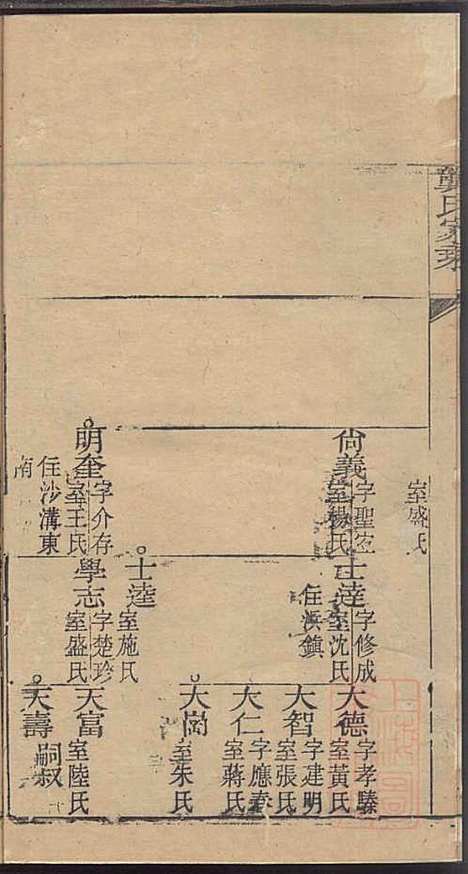 龔氏家乘
室盛氏
尙義
字聖宏
室楊氏
明奎
字介存
室王氏
住沙溝東
南
士逵
字修成
室沈氏
住浜鎮
士逵
室施氏
學志
字楚珍
室盛氏
大德
字孝騄
室黃氏
大智
字建明
室張氏
大仁
字應春
室蔣氏
大尚
室朱氏
天富
室陸氏
天壽
嗣叔